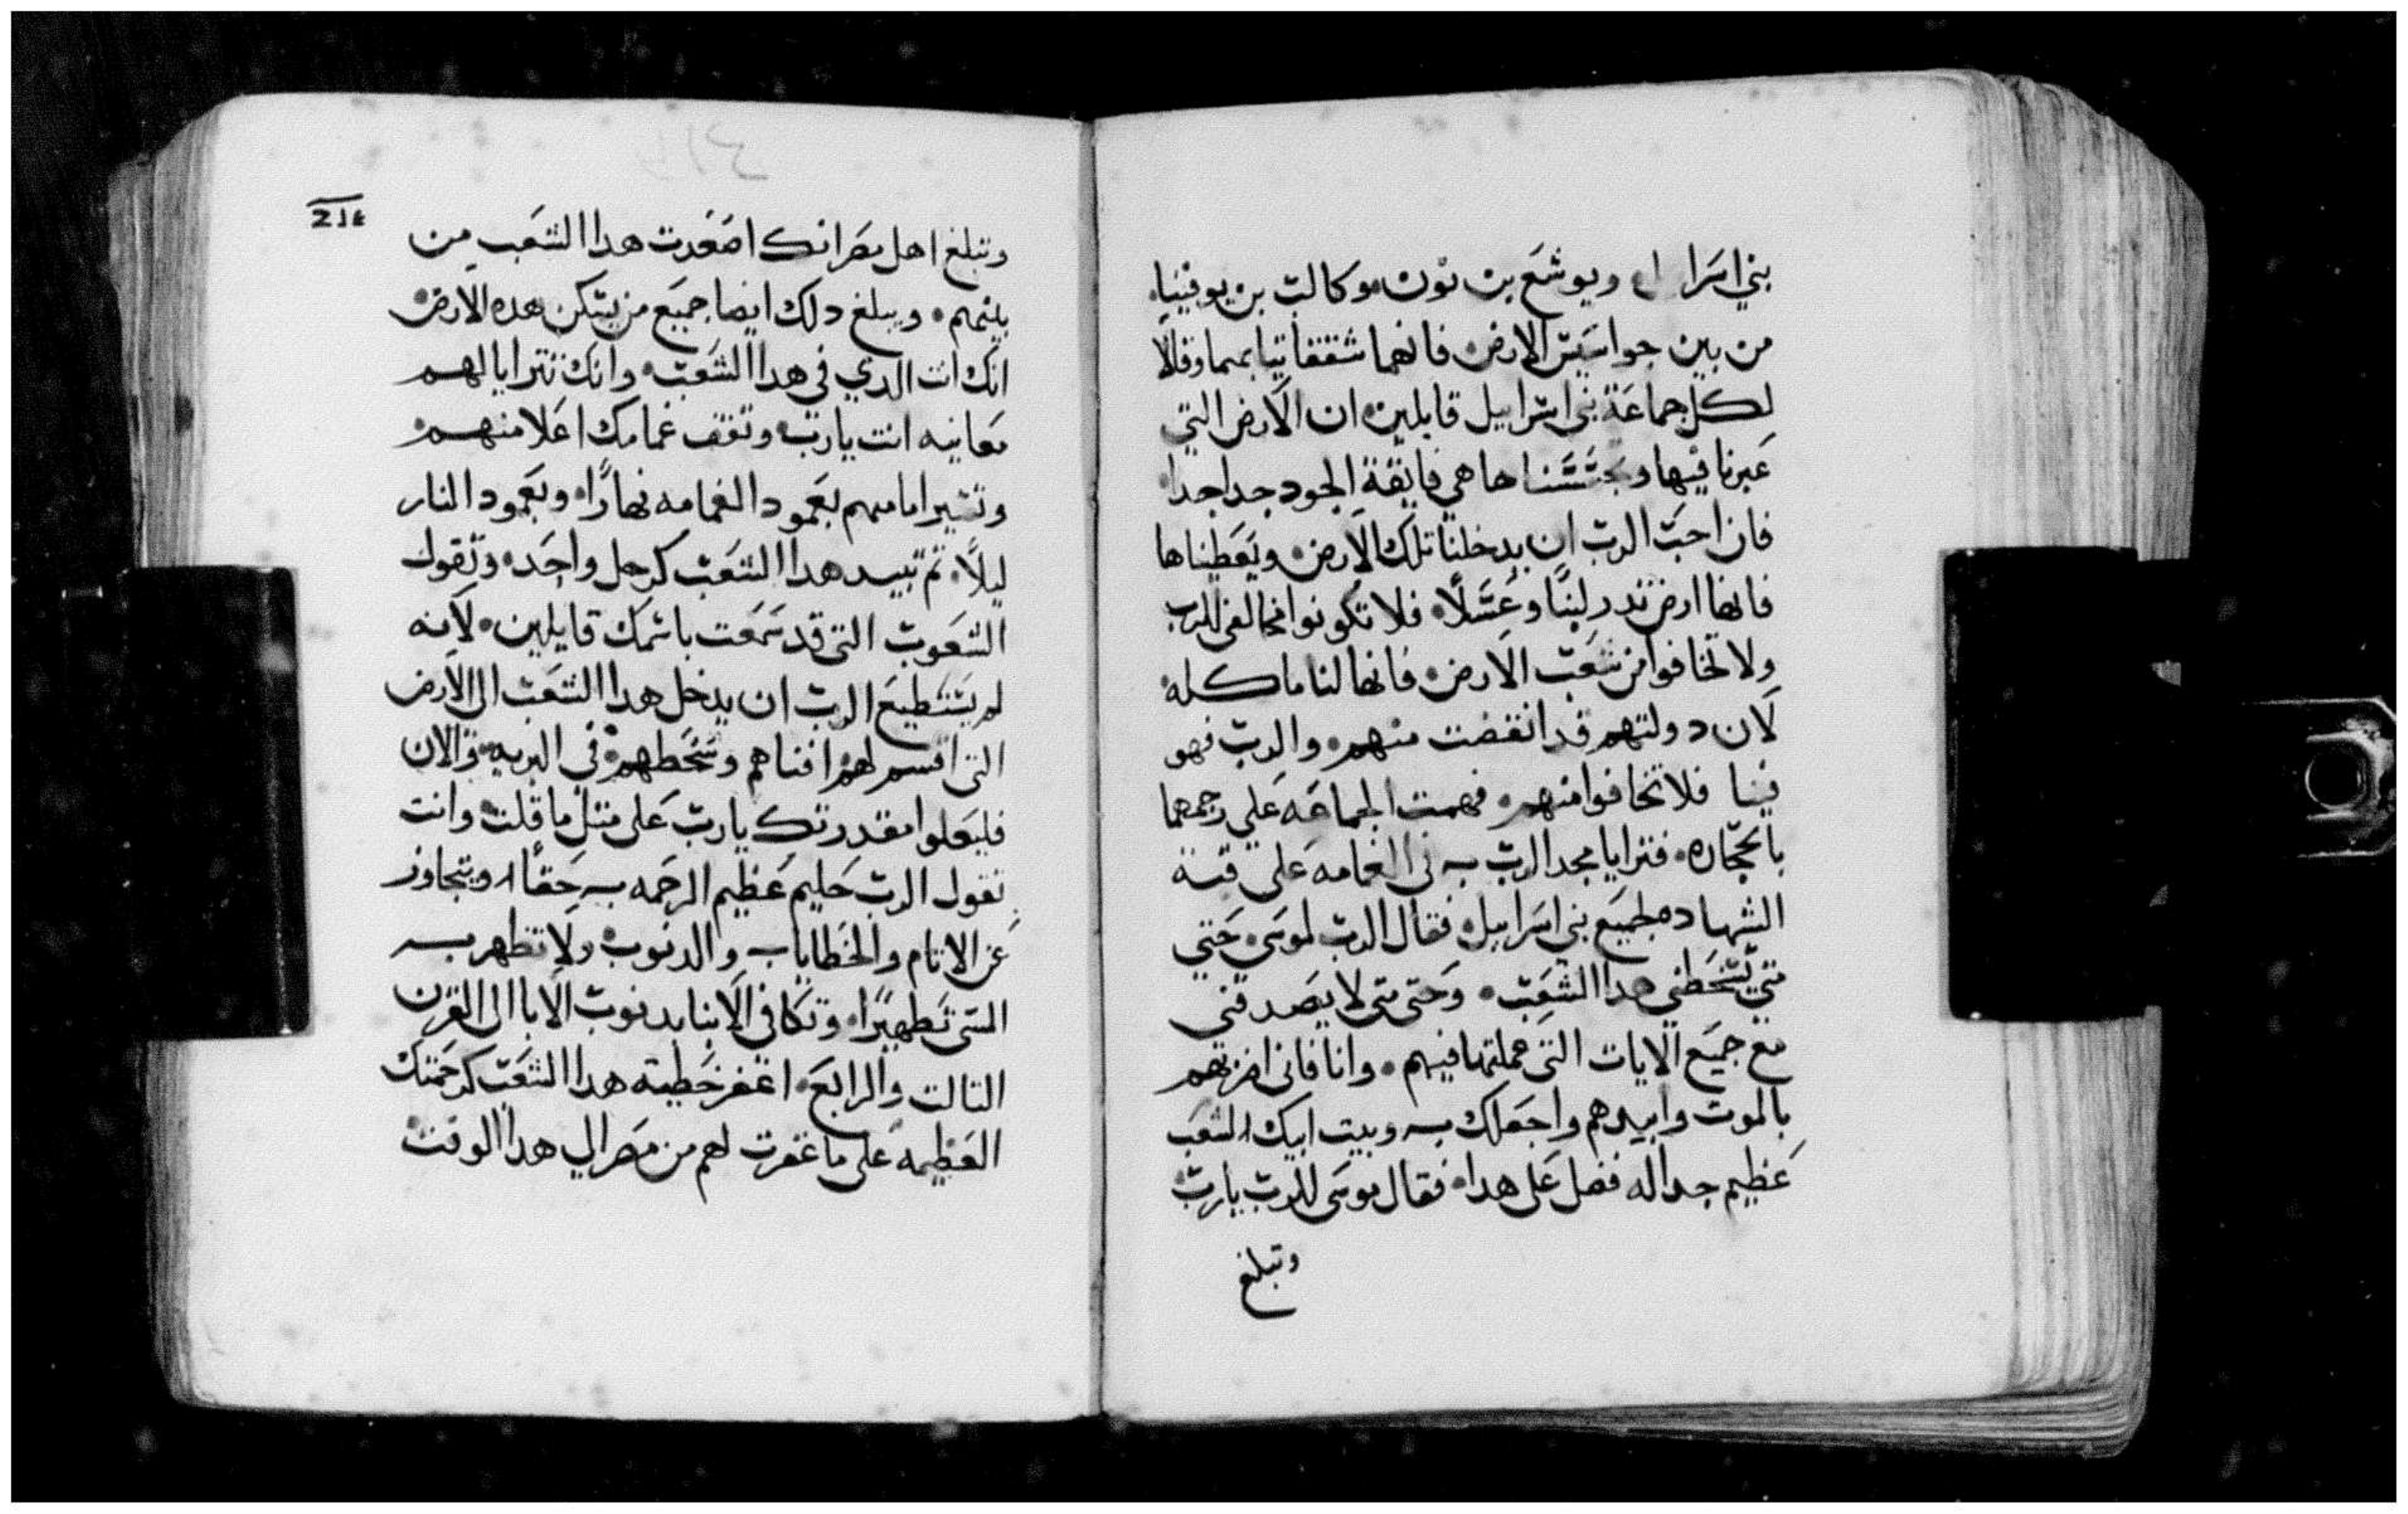 بني اسرا ل ويوشع بن نون وكالب بن يوفنيا
من بين جواسيس الارض فانهما شققا تيابهما وقالا
لكل جماعة بني اسراييل قايلين ان الارض التي
عبرنا فيها وتجسسناها هي فايقة الجود جدا جدا
فان احب الرب ان يدخلنا تلك الارض ويعطيناها
فانها ارض تدر لبنًا وعسلًا فلا تكونوا مخالفي الرب
ولا تخافوا من شعب الارض فانها لنا ماكله
لان دولتهم قد انقضت منهم والرب فهو
فينا فلا تخافوا منهم فهمت الجماعه علي رجمهما
بالحجاره فترايا مجد الرب به في الغمامه علي قبة
الشهاده لجميع بني اسراييل فقال الرب لموسي حتي
متي يسخطني هدا الشعب وحتى متى لا يصدقني
مع جميع الايات التي عملتها فيهم وانا فاني اضربهم
بالموت وابيدهم واجعلك به وبيت ابيك الشعب
عظيم جدا له فضل على هدا فقال موسى للرب يارب
وتبلغ
214
وتبلغ اهل مصر انك اصعدت هدا الشعب من
بينهم ويبلغ دلك ايضا جميع من يسكن هده الارض
انك انت الدي في هدا الشعب وانك تترايا لهم
معاينه انت يارب وتقف غمامك اعلا منهم
وتسير امامهم بعمود الغمامه نهارًا وبعمود النار
ليلًا تم تبيد هدا الشعب كرجل واحد وتقول
الشعوب التي قد سمعت باسمك قايلين لانه
لم يستطيع الرب ان يدخل هدا الشعب الى الارض
التي اقسم لهم افناهم وسخطهم في البريه والان
فليعلوا مقدرتك يارب على متل ما قلت وانت
تقول الرب حليم عظيم الرحمه به حقًا ويتجاوز
عن الاتام والخطايا به والدنوب ولا تظهر به
المتى تطهيرًا وتكافي الابنا بدنوب الابا الى القرن
التالت والرابع اغفر خطية هدا الشعب كرحمتك
العظيمه على ما غفرت لهم من مصر الي هدا الوقت